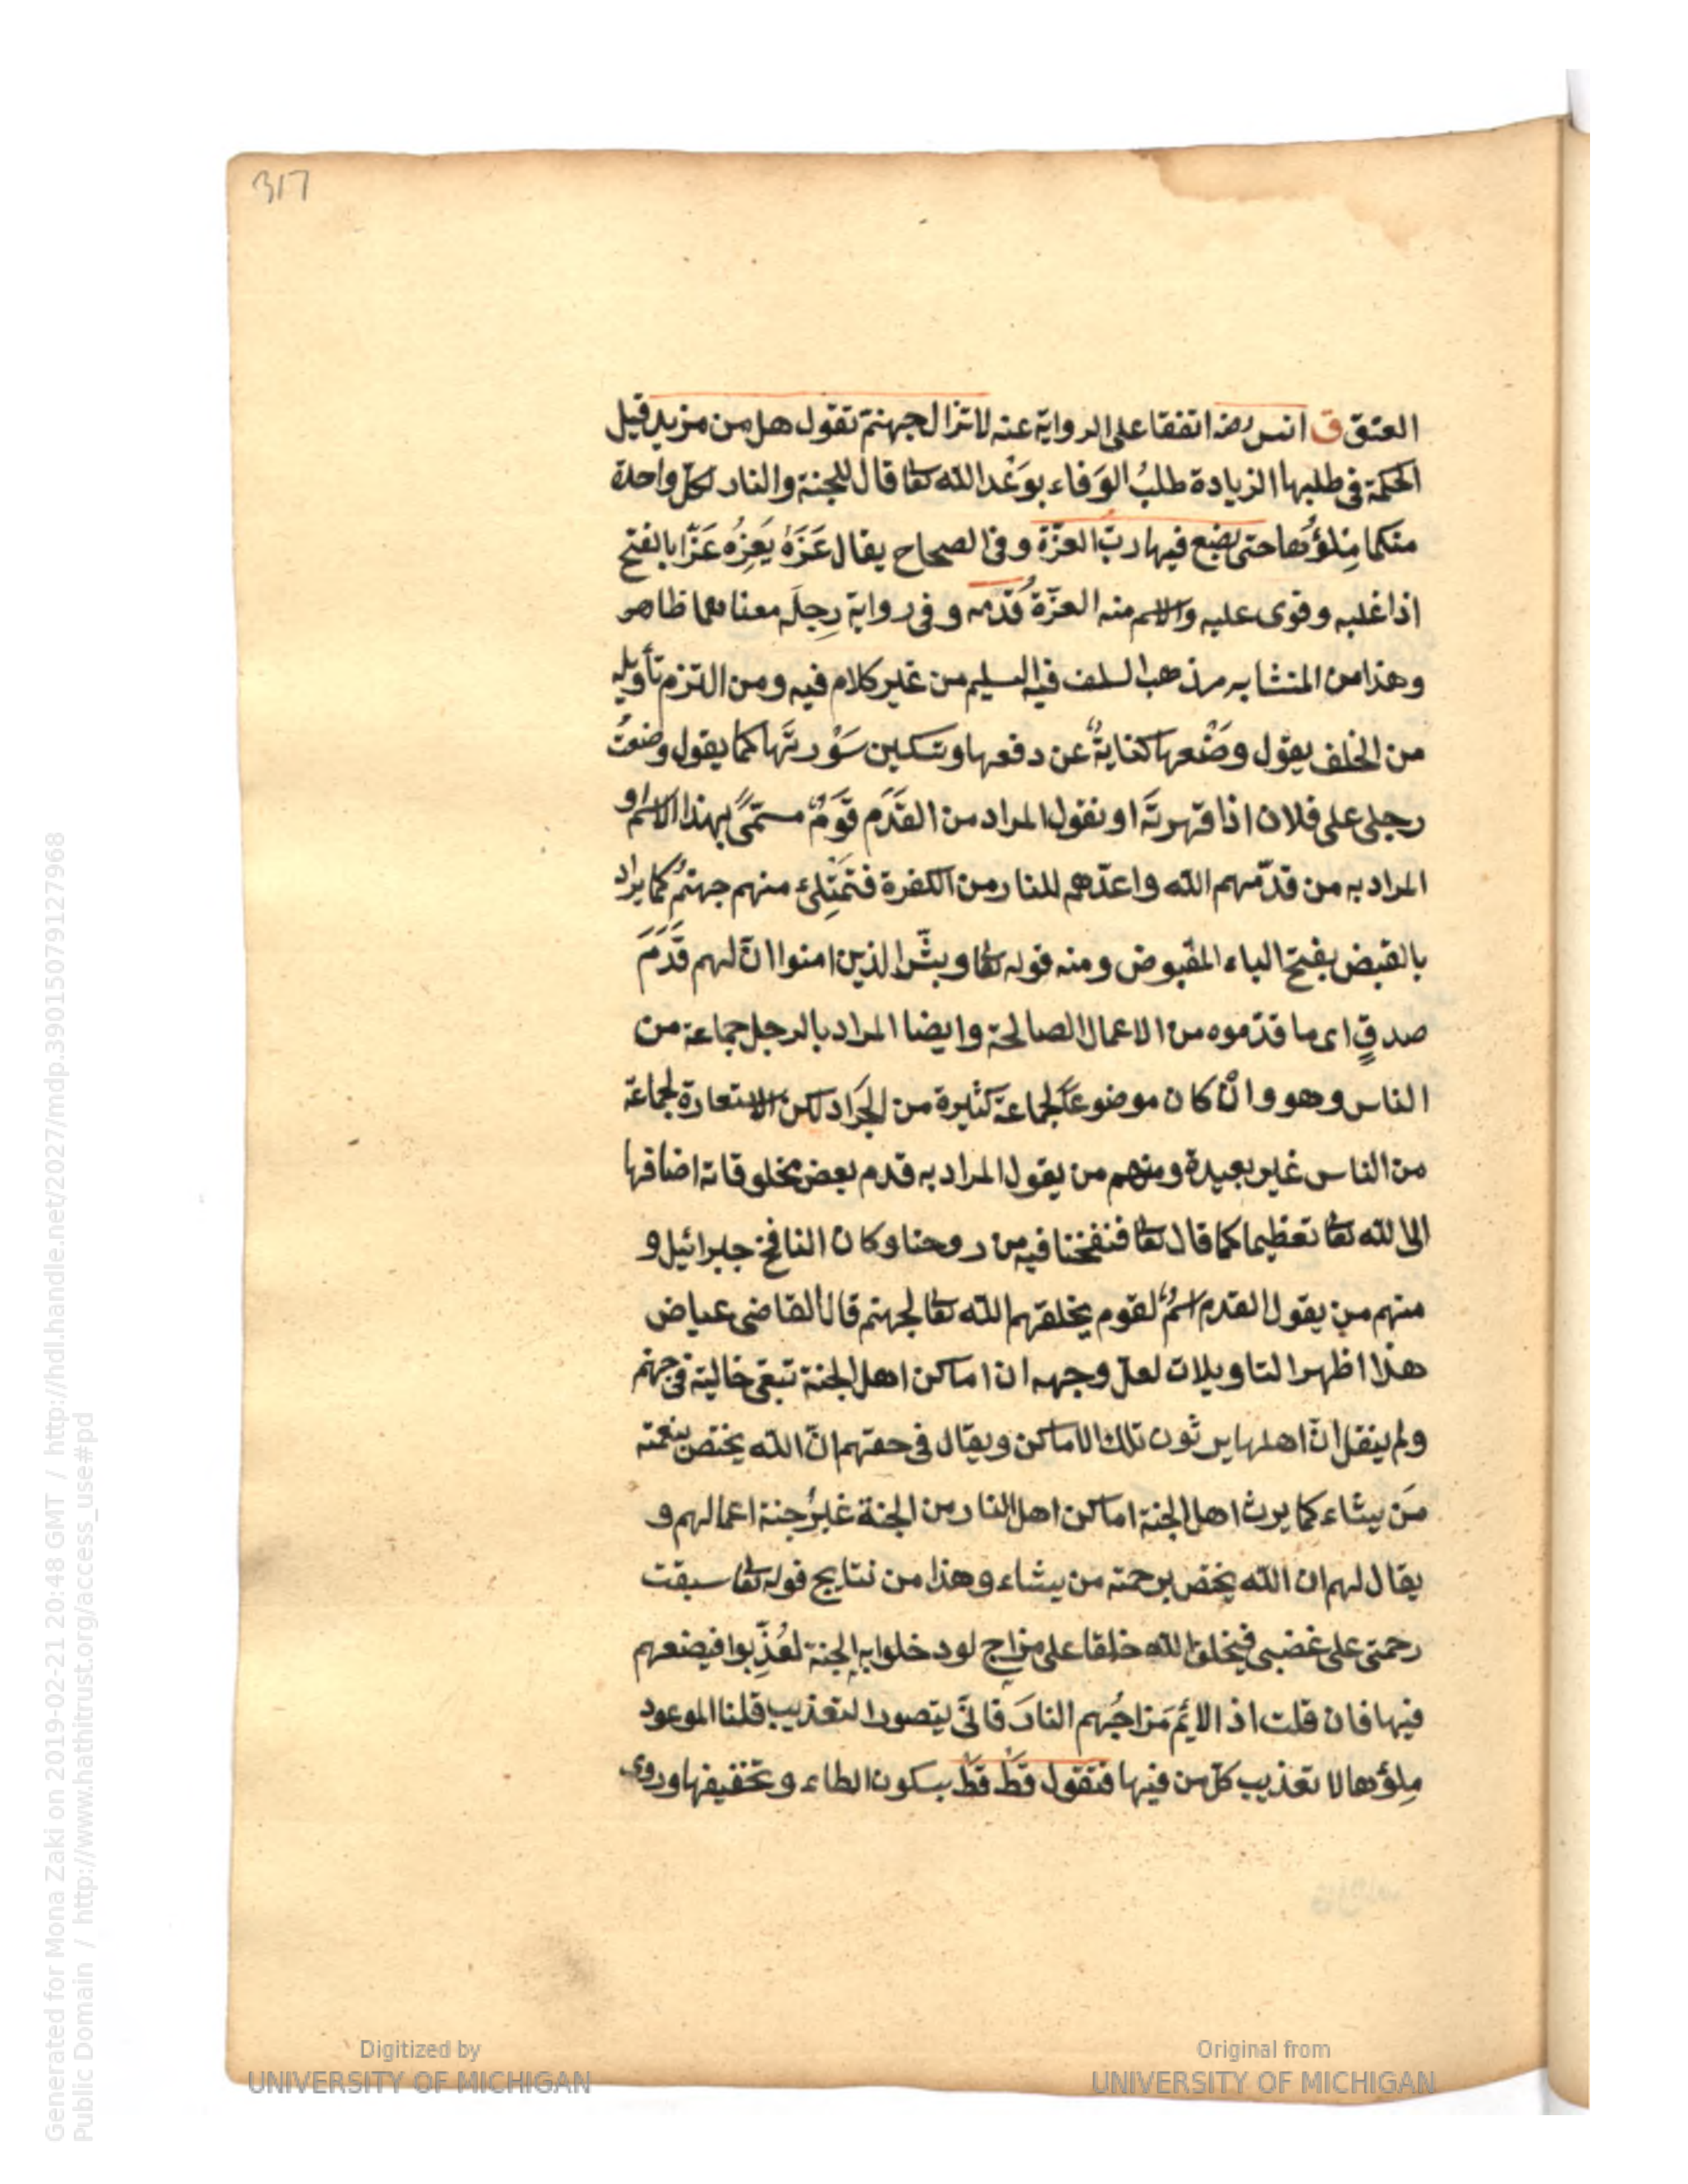 317
العتق ق انس رضه اتفقا على الرواية عنه لا تزال جهنم تقول هل من مزيد قيل
الحكمة فى طلبها الزيادة طلبُ الوَفاء بوَعْد الله تعا قال للجنة والنار لكل واحدة
منكما مِلؤُها حتى يضع فيها ربّ العزّة وفى الصحاح يقال عَزَّهُ يَعِزُّه عَزًّا بالفتح
اذا غلبه وقوى عليه والاسم منه العزّة قَدَمه وفى رواية رِجلَه معناهما ظاهر
وهذا من المتشابه مذهب السلف فيه التسليم من غير كلام فيه ومن التزم تأويله
من الخلف يقول وضْعها كنايةٌ عن دفعها وتسكين سَوْرتَها كما يقول وضعتُ
رجلى على فلان اذا قهرتَه او نقول المراد من القَدَم قَومٌ مسمّىً بهذا الاسم او
المراد به من قدّمهم الله واعدّهم للنار من الكفرة فتَمْتِلئ منهم جهنّم كما يراد
بالقبض بفتح الباء المقبوض ومنه قوله تعا وبشّر الذين امنوا انّ لهم قَدَمَ
صدقٍ اى ما قدّموه من الاعمال الصالحة وايضا المراد بالرجل جماعة من
الناس وهو وانْ كان موضوعًا لجماعة كثيرة من الجَراد لكن الاستعارة لجماعة
من الناس غير بعيدة ومنهم من يقول المراد به قدم بعض مخلوقاته اضافها
الى الله تعا تعظيما كما قال تعا فنفخنا فيه من روحنا وكان النافخ جبرائيل و
منهم من يقول القدم اسمٌ لقوم يخلقهم الله تعا لجهنم قال القاضى عياض
هذا اظهر التاويلات لعل وجهه ان اماكن اهل الجنة تبقى خالية فى جهنم
ولم ينقل انّ اهلها يرثون تلك الاماكن ويقال فى حقهم انّ الله يختص بنعمته
مَن يشاء كما يرث اهل الجنة اماكن اهل النار من الجنة غيرُ جنة اعمالهم و
يقال لهم ان الله يختص برحمته من يشاء وهذا من نتايج قوله تعا سبقت
رحمتى على غضبى فيخلق الله خلقا على مزاج لو دخلوا به الجنة لعُذّبوا فيضعهم
فيها فان قلت اذ الائم مَزاجُهم النارَ فانّى يتصور التعذيب قلنا الموعود
مِلؤها لا تعذيب كلّ من فيها فتقول قطْ قطْ بسكون الطاء وتخفيفها وروى